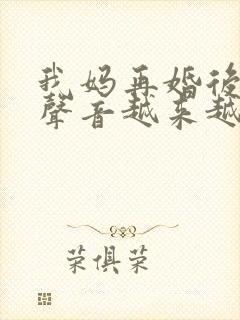 我妈再婚後
聲音越来越
荣俱荣